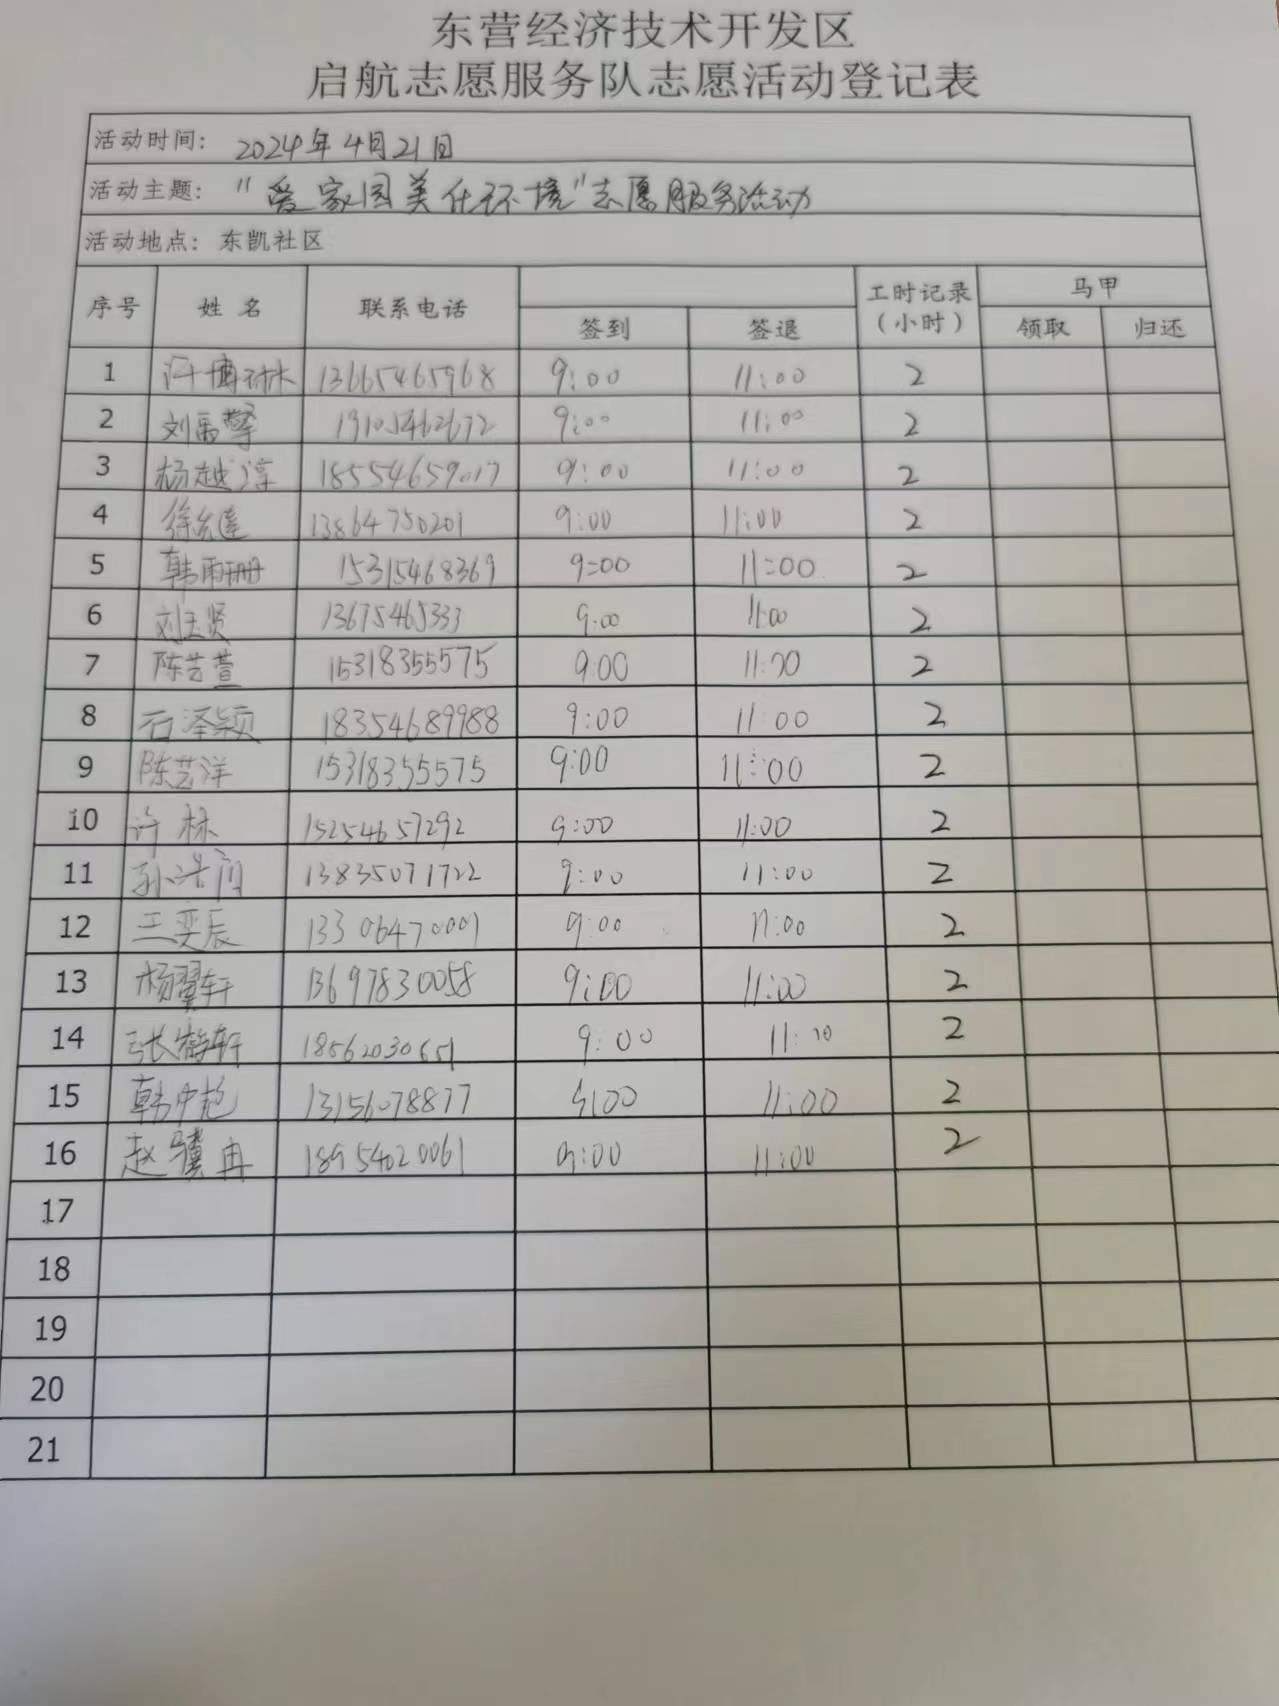 东营经济技术开发区
启航志愿服务队志愿活动登记表
活动时间: 2024年4月21日
活动主题: "爱家园美化环境"志愿服务活动
活动地点: 东凯社区
序号 姓名 联系电话 签到 签退 工时记录(小时) 马甲 领取 归还
1 许博林 13665465968 9:00 11:00 2
2 刘禹擎 19105462672 9:00 11:00 2
3 杨越淳 18554659017 9:00 11:00 2
4 徐 13864750201 9:00 11:00 2
5 韩雨珊 15315468369 9:00 11:00 2
6 刘玉贤 13675465333 9:00 11:00 2
7 陈艺萱 15318355575 9:00 11:00 2
8 石泽颖 18354689988 9:00 11:00 2
9 陈艺洋 15318355575 9:00 11:00 2
10 许林 15254657292 9:00 11:00 2
11 孙浩 13835071722 9:00 11:00 2
12 王奕辰 13306470001 9:00 11:00 2
13 杨翼轩 13697830058 9:00 11:00 2
14 张轩 18562030651 9:00 11:00 2
15 韩 13156078877 9:00 11:00 2
16 赵骥冉 18954020061 9:00 11:00 2
17
18
19
20
21